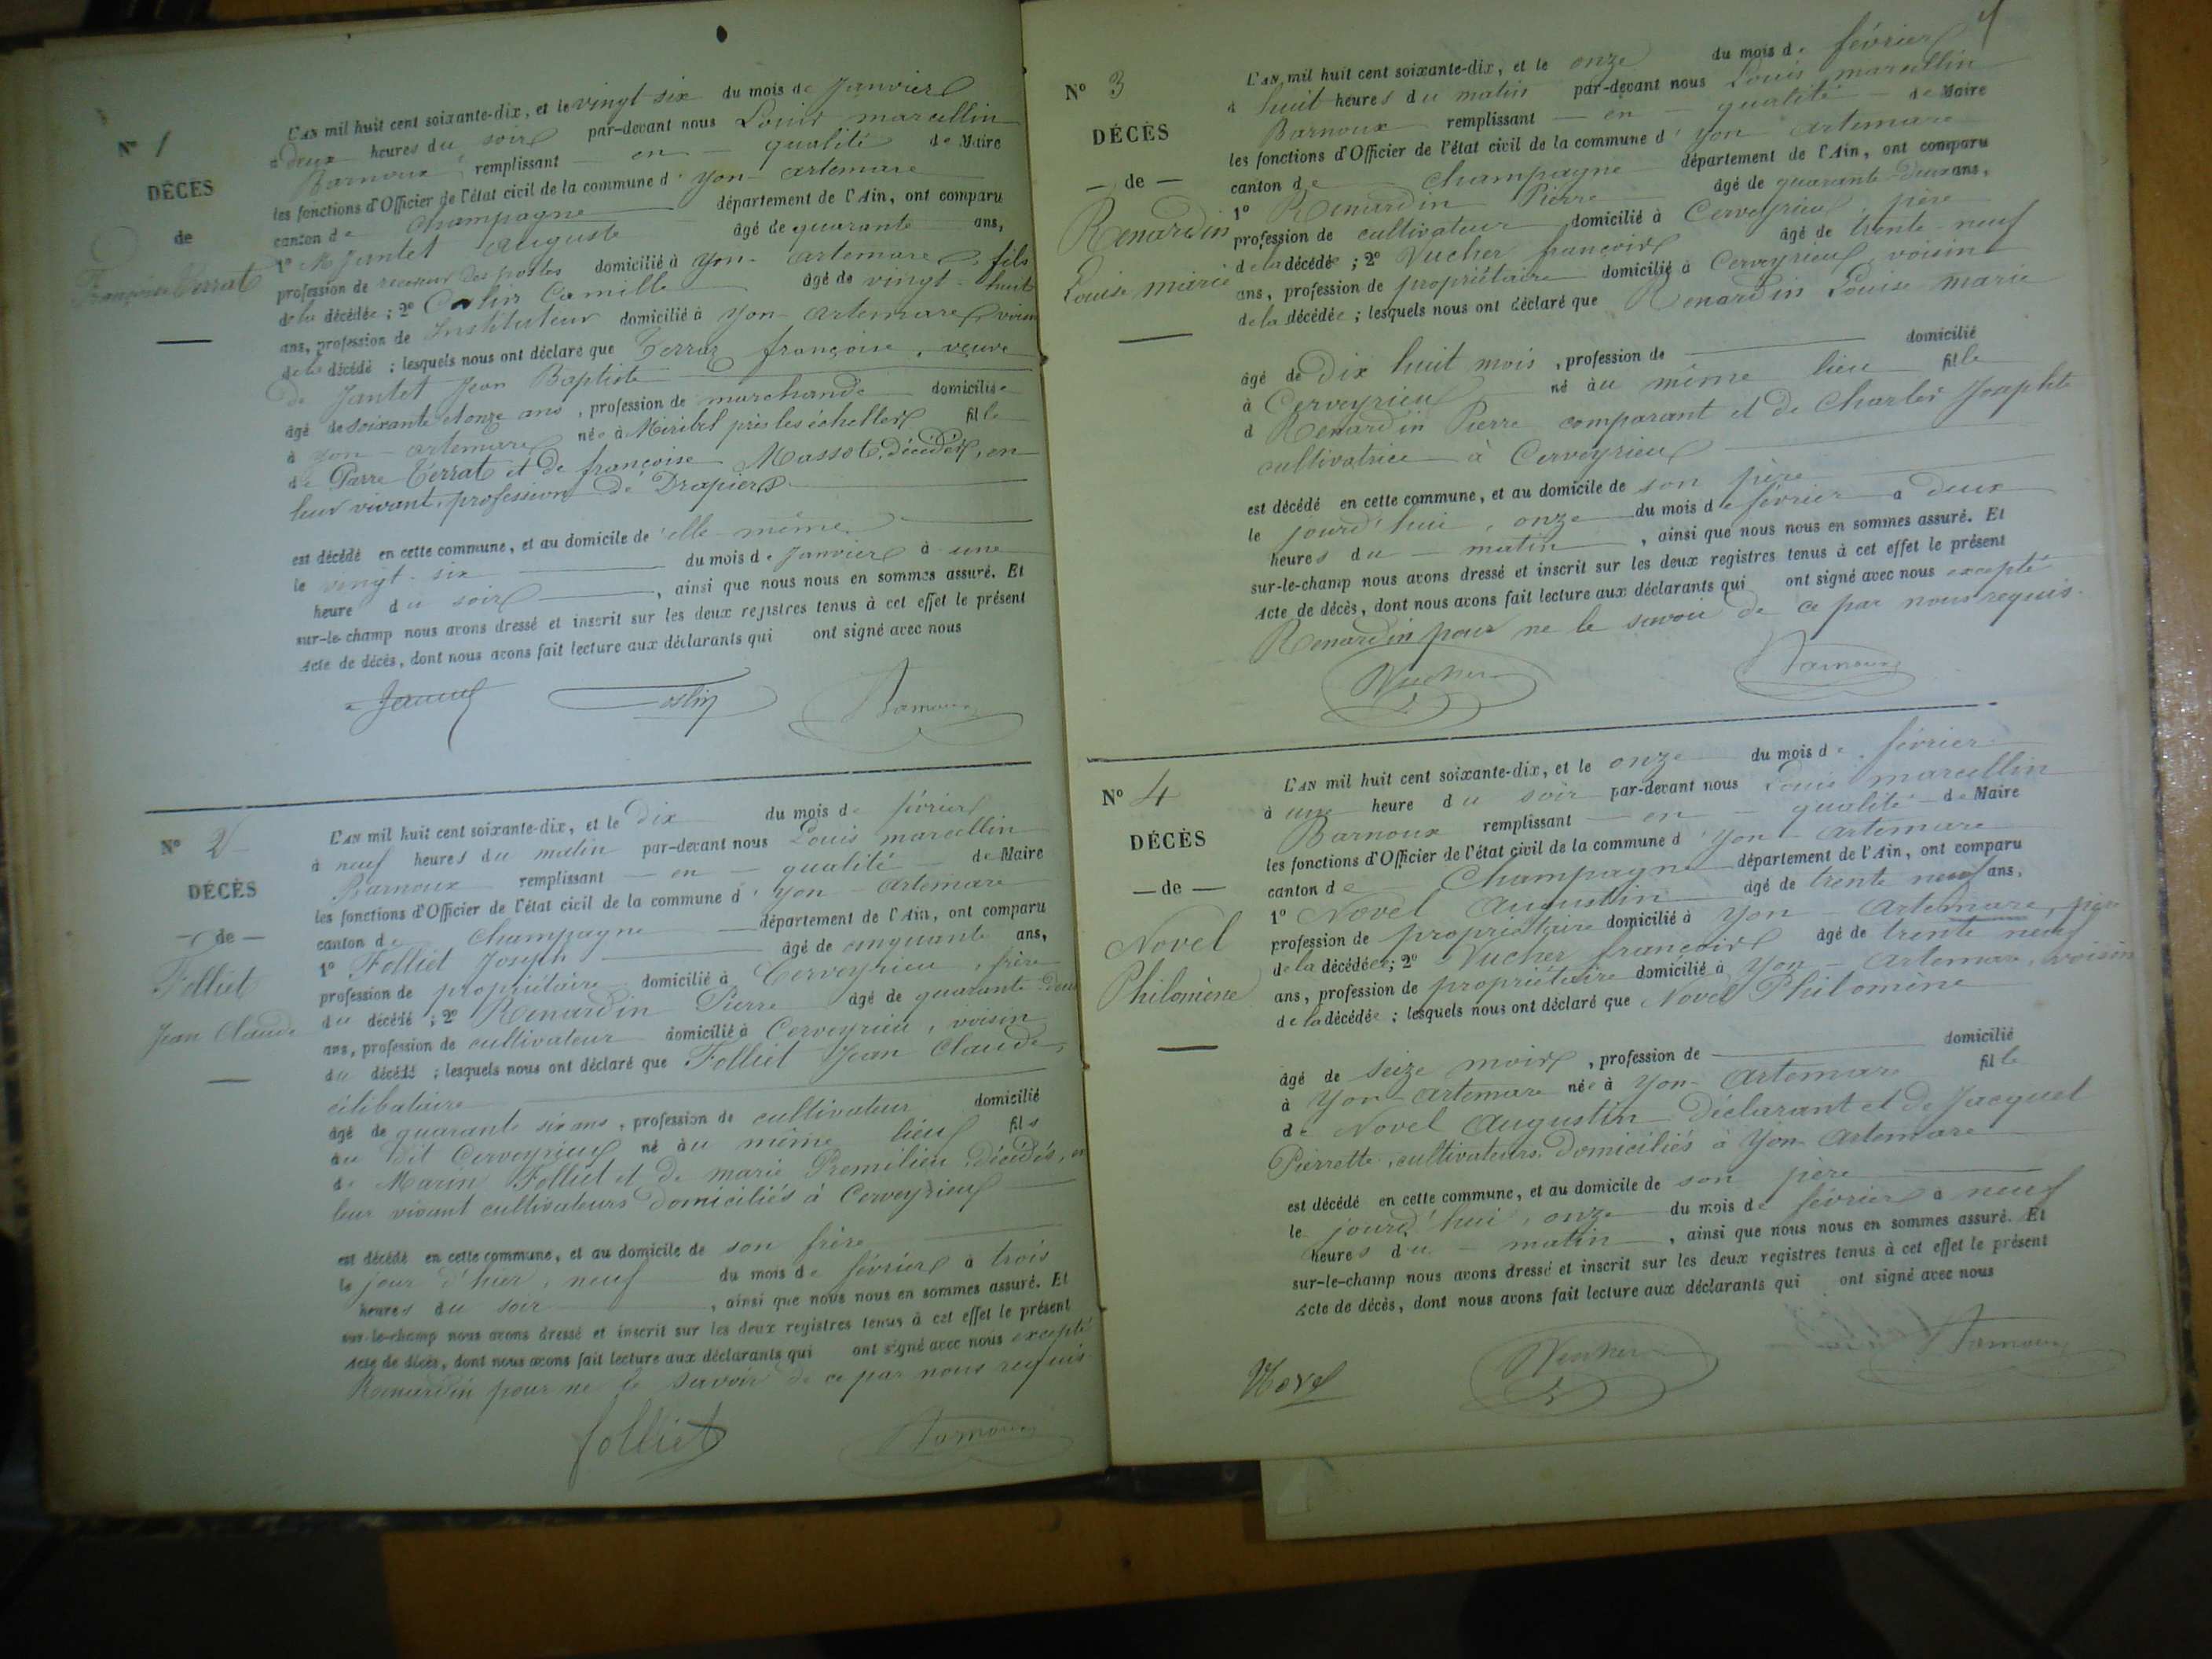 Nº 1
DÉCÈS
de
Françoise Terrat
L'AN mil huit cent soixante-dix, et le vingt six du mois de Janvier
à deux heures du soir par-devant nous Louis marcellin
Barnoux remplissant en qualité de Maire
les fonctions d'Officier de l'état civil de la commune d'Yon-artemare
canton de Champagne département de l'Ain, ont comparu
1º Jantet Auguste âgé de quarante ans,
profession de receveur des postes domicilié à Yon-artemare, fils
de la décédée ; 2º Camille âgé de vingt-huit
ans, profession de Instituteur domicilié à Yon-Artemare, voisin
de la décédé ; lesquels nous ont déclaré que françoise, veuve
de Jantet Jean Baptiste
âgé de soixante et onze ans, profession de marchande domiciliée
à Yon-artemare née à Miribel près les échelles fille
de Terrat et de françoise Massot, décédés, en
leur vivant, profession de Drapiers
est décédé en cette commune, et au domicile de elle-même
le vingt-six du mois de Janvier à une
heure du soir, ainsi que nous nous en sommes assuré. Et
sur-le-champ nous avons dressé et inscrit sur les deux registres tenus à cet effet le présent
Acte de décès, dont nous avons fait lecture aux déclarants qui ont signé avec nous
Barnoux
Nº 2
DÉCÈS
— de —
Folliet
Jean Claude
L'AN mil huit cent soixante-dix, et le dix du mois de février
à neuf heures du matin par-devant nous Louis marcellin
Barnoux remplissant en qualité de Maire
les fonctions d'Officier de l'état civil de la commune d'Yon-Artemare
canton de Champagne département de l'Ain, ont comparu
1º Folliet Joseph âgé de cinquante ans,
profession de propriétaire domicilié à Cerveyrieu, frère
du décédé ; 2º Renardin Pierre âgé de quarante-deux
ans, profession de cultivateur domicilié à Cerveyrieu, voisin
du décédé ; lesquels nous ont déclaré que Folliet Jean Claude,
célibataire
âgé de quarante six ans, profession de cultivateur domicilié
au dit Cerveyrieu né au même lieu fils
de Marin Folliet et de marie Premilieu, décédés, en
leur vivant cultivateurs domiciliés à Cerveyrieu
est décédé en cette commune, et au domicile de son frère
le jour d'hier, neuf du mois de février à trois
heures du soir, ainsi que nous nous en sommes assuré. Et
sur-le-champ nous avons dressé et inscrit sur les deux registres tenus à cet effet le présent
Acte de décès, dont nous avons fait lecture aux déclarants qui ont signé avec nous excepté
Renardin pour ne le savoir de ce par nous requis.
folliet Barnoux
Nº 3
DÉCÈS
— de —
Renardin
Louise marie
L'AN mil huit cent soixante-dix, et le onze du mois de février
à huit heures du matin par-devant nous Louis marcellin
Barnoux remplissant en qualité de Maire
les fonctions d'Officier de l'état civil de la commune d'Yon Artemare
canton de Champagne département de l'Ain, ont comparu
1º Renardin Pierre âgé de quarante-deux ans,
profession de cultivateur domicilié à Cerveyrieu, père
de la décédée ; 2º Vucher françois âgé de trente-neuf
ans, profession de propriétaire domicilié à Cerveyrieu, voisin
de la décédée ; lesquels nous ont déclaré que Renardin Louise marie
âgé de dix huit mois, profession de domicilié
à Cerveyrieu né au même lieu fille
d Renardin Pierre comparant et de Charles Josephte
cultivatrice à Cerveyrieu
est décédé en cette commune, et au domicile de son père
le jourd'hui, onze du mois de février à deux
heures du matin, ainsi que nous nous en sommes assuré. Et
sur-le-champ nous avons dressé et inscrit sur les deux registres tenus à cet effet le présent
Acte de décès, dont nous avons fait lecture aux déclarants qui ont signé avec nous excepté
Renardin pour ne le savoir de ce par nous requis.
Vucher Barnoux
Nº 4
DÉCÈS
— de —
Novel
Philomène
L'AN mil huit cent soixante-dix, et le onze du mois de février
à une heure du soir par-devant nous Louis marcellin
Barnoux remplissant en qualité de Maire
les fonctions d'Officier de l'état civil de la commune d'Yon-Artemare
canton de Champagne département de l'Ain, ont comparu
1º Novel Augustin âgé de trente neuf ans,
profession de propriétaire domicilié à Yon-Artemare, père
de la décédée ; 2º Vucher françois âgé de trente neuf
ans, profession de propriétaire domicilié à Yon Artemare, voisin
de la décédée ; lesquels nous ont déclaré que Novel Philomène
âgé de seize mois, profession de domicilié
à Yon-artemare née à Yon-Artemare fille
de Novel Augustin Déclarant et de Jacquet
Pierrette, cultivateurs domiciliés à Yon-Artemare
est décédé en cette commune, et au domicile de son père
le jourd'hui, onze du mois de février à neuf
heures du matin, ainsi que nous nous en sommes assuré. Et
sur-le-champ nous avons dressé et inscrit sur les deux registres tenus à cet effet le présent
Acte de décès, dont nous avons fait lecture aux déclarants qui ont signé avec nous
Novel Vucher Barnoux